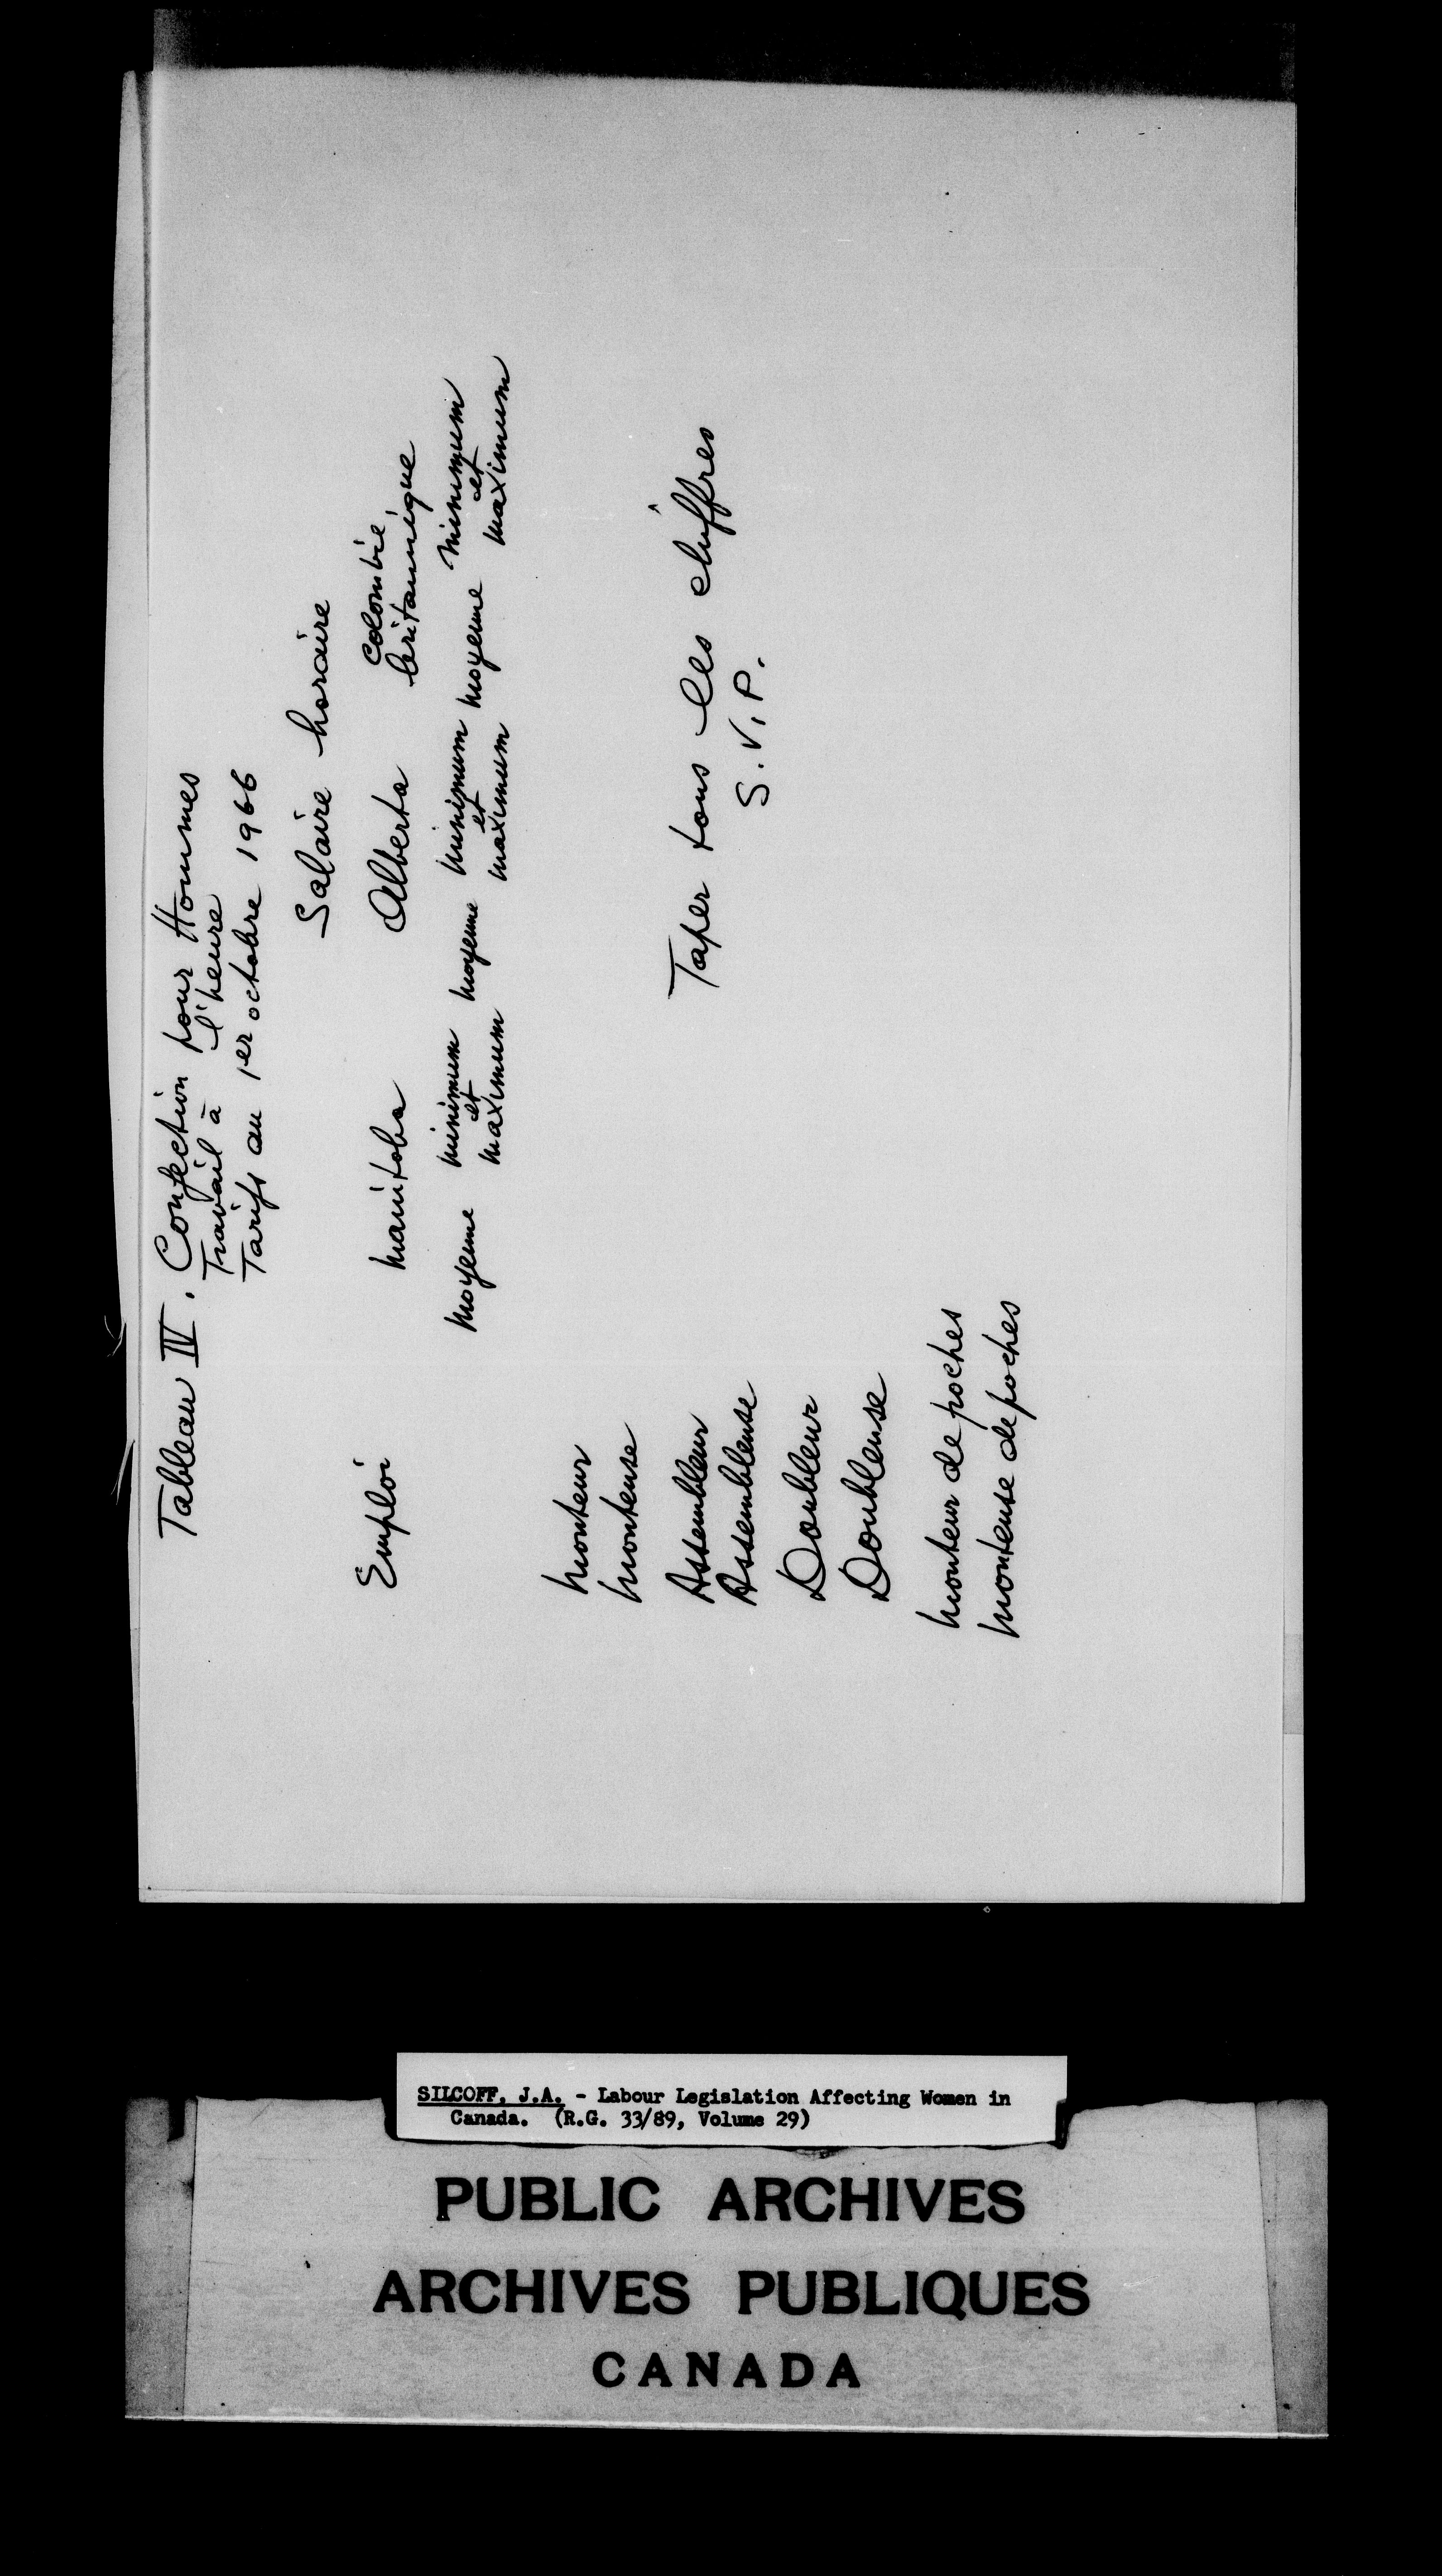 Tableau IV. Confection pour Hommes
Travail à l'heure
Tarifs au 1er octobre 1966
Salaire horaire
Emploi Manitoba Alberta Colombie
britannique
moyenne minimum moyenne minimum moyenne minimum
et et et
maximum maximum maximum
monteur
monteuse
Assembleur
Assembleuse
Taper tous les chiffres
S.V.P.
Doubleur
Doubleuse
monteur de poches
monteuse de poches
SILCOFF, J.A. - Labour Legislation Affecting Women in
Canada. (R.G. 33/89, Volume 29)
PUBLIC ARCHIVES
ARCHIVES PUBLIQUES
CANADA